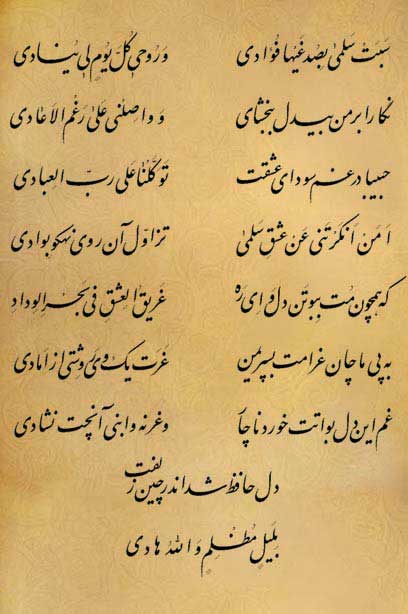 سبت سلمی بصدغیها فؤادی وروحی کل یوم لی ینادی
نگارا بر من بیدل ببخشای و واصلنی علی رغم الاعادی
حبیبا در غم سودای عشقت توکلنا علی رب العبادی
امن انکرتنی عن عشق سلمی تزاول آن روی نهکو بوادی
که همچون مت ببوتن دل و ای ره غریق العشق فی بحر الوداد
به پی ماچان غرامت بسپریمن غرت یک وی روشتی از امادی
غم این دل بواتت خورد ناچار وغرنه وابنی آنچت نشادی
دل حافظ شد اندر چین زلفت
بلیل مظلم والله هادی